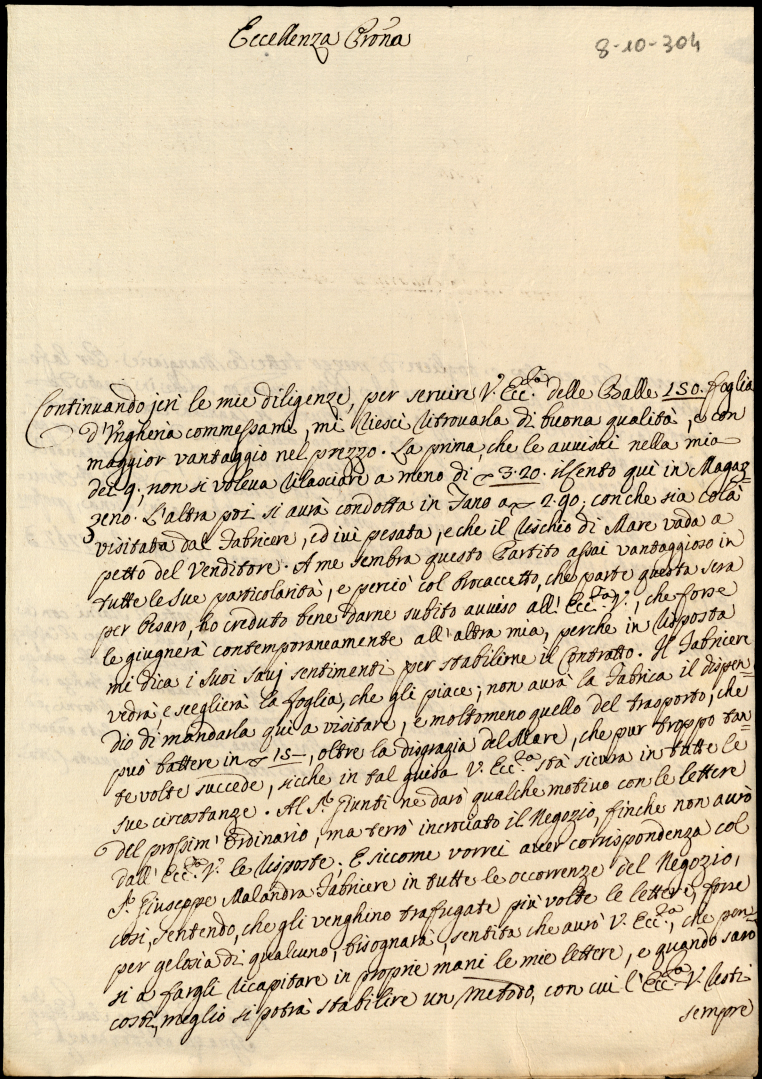 Eccellenza Prona
8-10-304
Continuando jeri le mie diligenze, per servire V. Ecc.za delle Balle 150. foglia
d'Vngheria commessami, mi riesci ritrouarla di buona qualità, e con
maggior vantaggio nel prezzo. La prima, che le auuisai nella mia
dei 9. non si voleua rilasciare a meno di 3.20. il sento qui in Magaz=
zeno. L'altra poi si aurà condotta in Fano a 2.90, con che sia colà
visitata dal Fabricere, ed iui pesata, e che il rischio di Mare vada a
petto del Venditore. A me sembra questo Partito assai vantaggioso in
tutte le sue particolarità, e perciò col Procaccetto, che parte questa sera
per Pesaro, ho creduto bene darne subito auuiso all'Ecc.za V., che forse
le giugnerà contemporaneamente all'altra mia, perche in risposta
mi dica i suoi savj sentimenti per stabilirne il Contratto. Il Fabricere
vedrà e sceglierà la foglia, che gli piace; non aurà la Fabrica il dispen=
dio di mandarla qui a visitare, e molto meno quello del trasporto, che
può battere in 15, oltre la disgrazia del Mare, che pur troppo tan=
te volte succede, sicche in tal guisa V. Ecc.za stà sicura in tutte le
sue circostanze. Al S.r Giunti ne darò qualche motivo con le lettere
del prossim' Ordinario, ma terrò incrociato il Negozio, finche non aurò
dall'Ecc.za V. le risposte. E siccome vorrei auer corrispondenza col
S.r Giuseppe Malandra Fabricere in tutte le occorrenze del Negozio,
così, sentendo, che gli venghino trafugate più volte le lettere, forse
per gelosia di qualcuno, bisognarà, sentita che aurò V. Ecc.za, che pen=
si a fargli ricapitare in proprie mani le mie lettere, e quando sarò
costì, meglio si potrà stabilire un Metodo, con cui l'Ecc.za V. resti
sempre